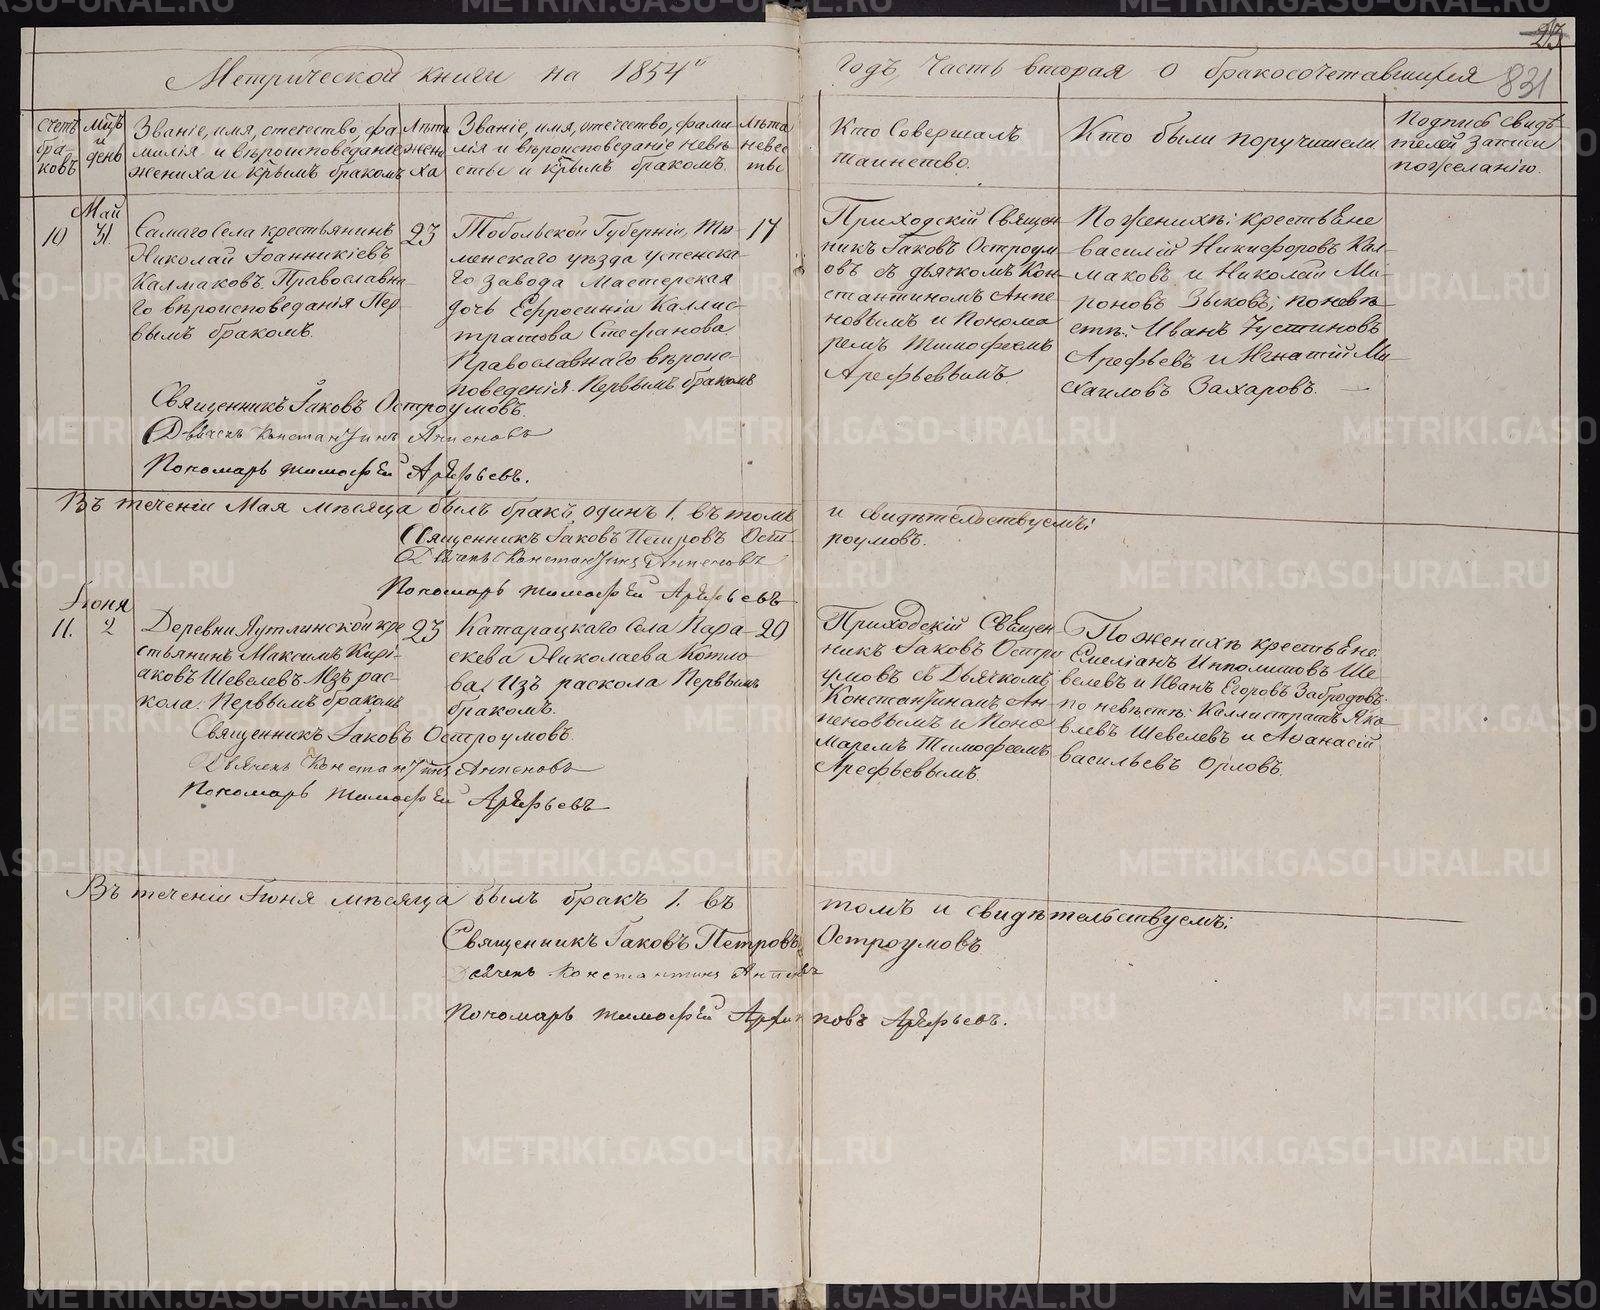 23
831
Метрической книги на 1854 годъ, Часть вторая о бракосочетавшихся
Счетъ браковъ
Мцъ и день
Званіе, имя, отечество, фа-
милія и вѣроисповеданіе
жениха и коимъ бракомъ
Лѣта
жени
ха
Званіе, имя, отечество, фами-
лія и вѣроисповеданіе невѣ-
сты и коимъ бракомъ.
Лѣта
невес
ты
Кто Совершалъ
таинство.
Кто были поручители
Подпись свидѣ-
телей записи
по желанію.
Май
10
31
Самаго Села крестьянинъ
Николай Іоанникіевъ
Калмаковъ. Православна-
го вѣроисповеданія Пер-
вымъ бракомъ.
23
Тобольской Губерніи, Тю-
менскаго уѣзда успенска-
го завода Мастерская
дочь Евфросинія Каллис-
тратова Стефанова
Православнаго вѣроис-
поведенія. Первымъ бракомъ
17
Приходскій Священ-
никъ Іаковъ Остроум-
овъ съ дьячкомъ Кон-
стантиномъ Анпе-
новымъ и Понома
ремъ Тимофеемъ
Арефьевымъ.
По женихѣ: крестьяне
василій Никифоровъ Кал-
маковъ и Николай Ми-
роновъ Зыковъ; по невѣ-
стѣ: Иванъ Іустиновъ
Арефьевъ и Игнатій Ми-
хаиловъ Захаровъ.
Священникъ Іаковъ Остроумовъ.
Дьячекъ Константинъ Анпеновъ
Пономарь тимофѣй Арефьевъ.
Въ теченіи Мая мѣсяца былъ бракъ одинъ 1. въ томъ и свидѣтельствуемъ:
Священникъ Іаковъ Петровъ Остроумовъ.
Дьячекъ Константинъ Анпеновъ
Пономарь тимофѣй Арефьевъ
Іюня
11.
2
Деревни Яутлинской кре
стьянинъ Максимъ Кирі-
аковъ Шевелевъ. Изъ рас-
кола. Первымъ бракомъ
23
Катарацкаго Села Пара-
скева Николаева Котло
ва, Изъ раскола Первымъ
бракомъ.
20
Приходскій Священ-
никъ Іаковъ Остро
умовъ съ Дьячкомъ
Константиномъ Ан-
пеновымъ и Поно
маремъ Тимофеемъ
Арефьевымъ.
По женихѣ крестьяне:
Емеліанъ Ипполитовъ Ше-
велевъ и Иванъ Егоровъ Забродовъ.
по невѣстѣ: Каллистратъ Яко
влевъ Шевелевъ и Афанасій
васильевъ Орловъ.
Священникъ Іаковъ Остроумовъ.
Дьячекъ Константинъ Анпеновъ
Пономарь тимофѣй Арефьевъ
Въ теченіи Іюня мѣсяца былъ бракъ 1. въ томъ и свидѣтельствуемъ:
Священникъ Іаковъ Петровъ Остроумовъ.
Дьячекъ Константинъ Анпеновъ
Пономарь тимофѣй Архиповъ Арефьевъ.
METRIKI.GASO-URAL.RU